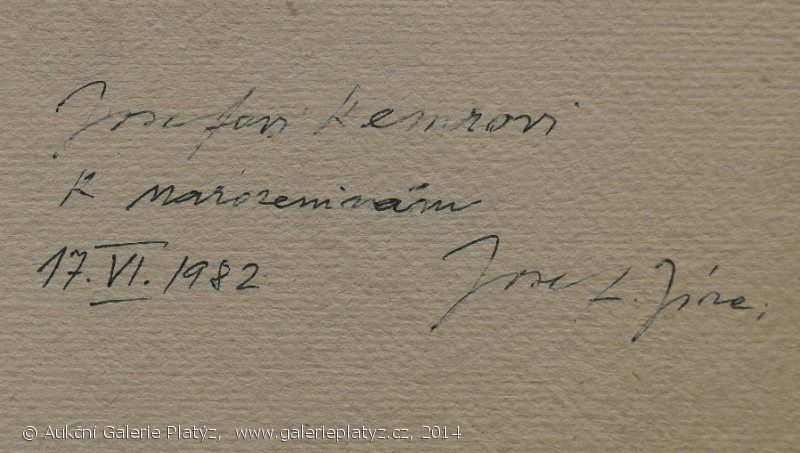 Josefovi Kemrovi
K narozeninám
17. VI. 1982
Josef L. Jíra.
© Aukční Galerie Platýz, www.galerieplatyz.cz, 2014